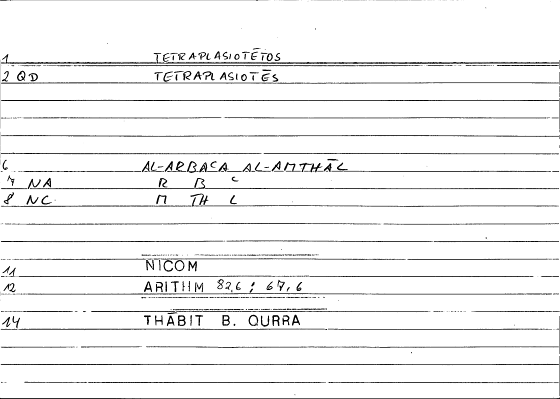 1 TETRAPLASIOTĒTOS
2 QD TETRAPLASIOTĒS
6 AL-ARBAᶜA AL-AMTHĀL
7 NA R B ᶜ
8 NC M TH L
11 NICOM
12 ARITHM 82,6 ; 67,6
14 THĀBIT B. QURRA